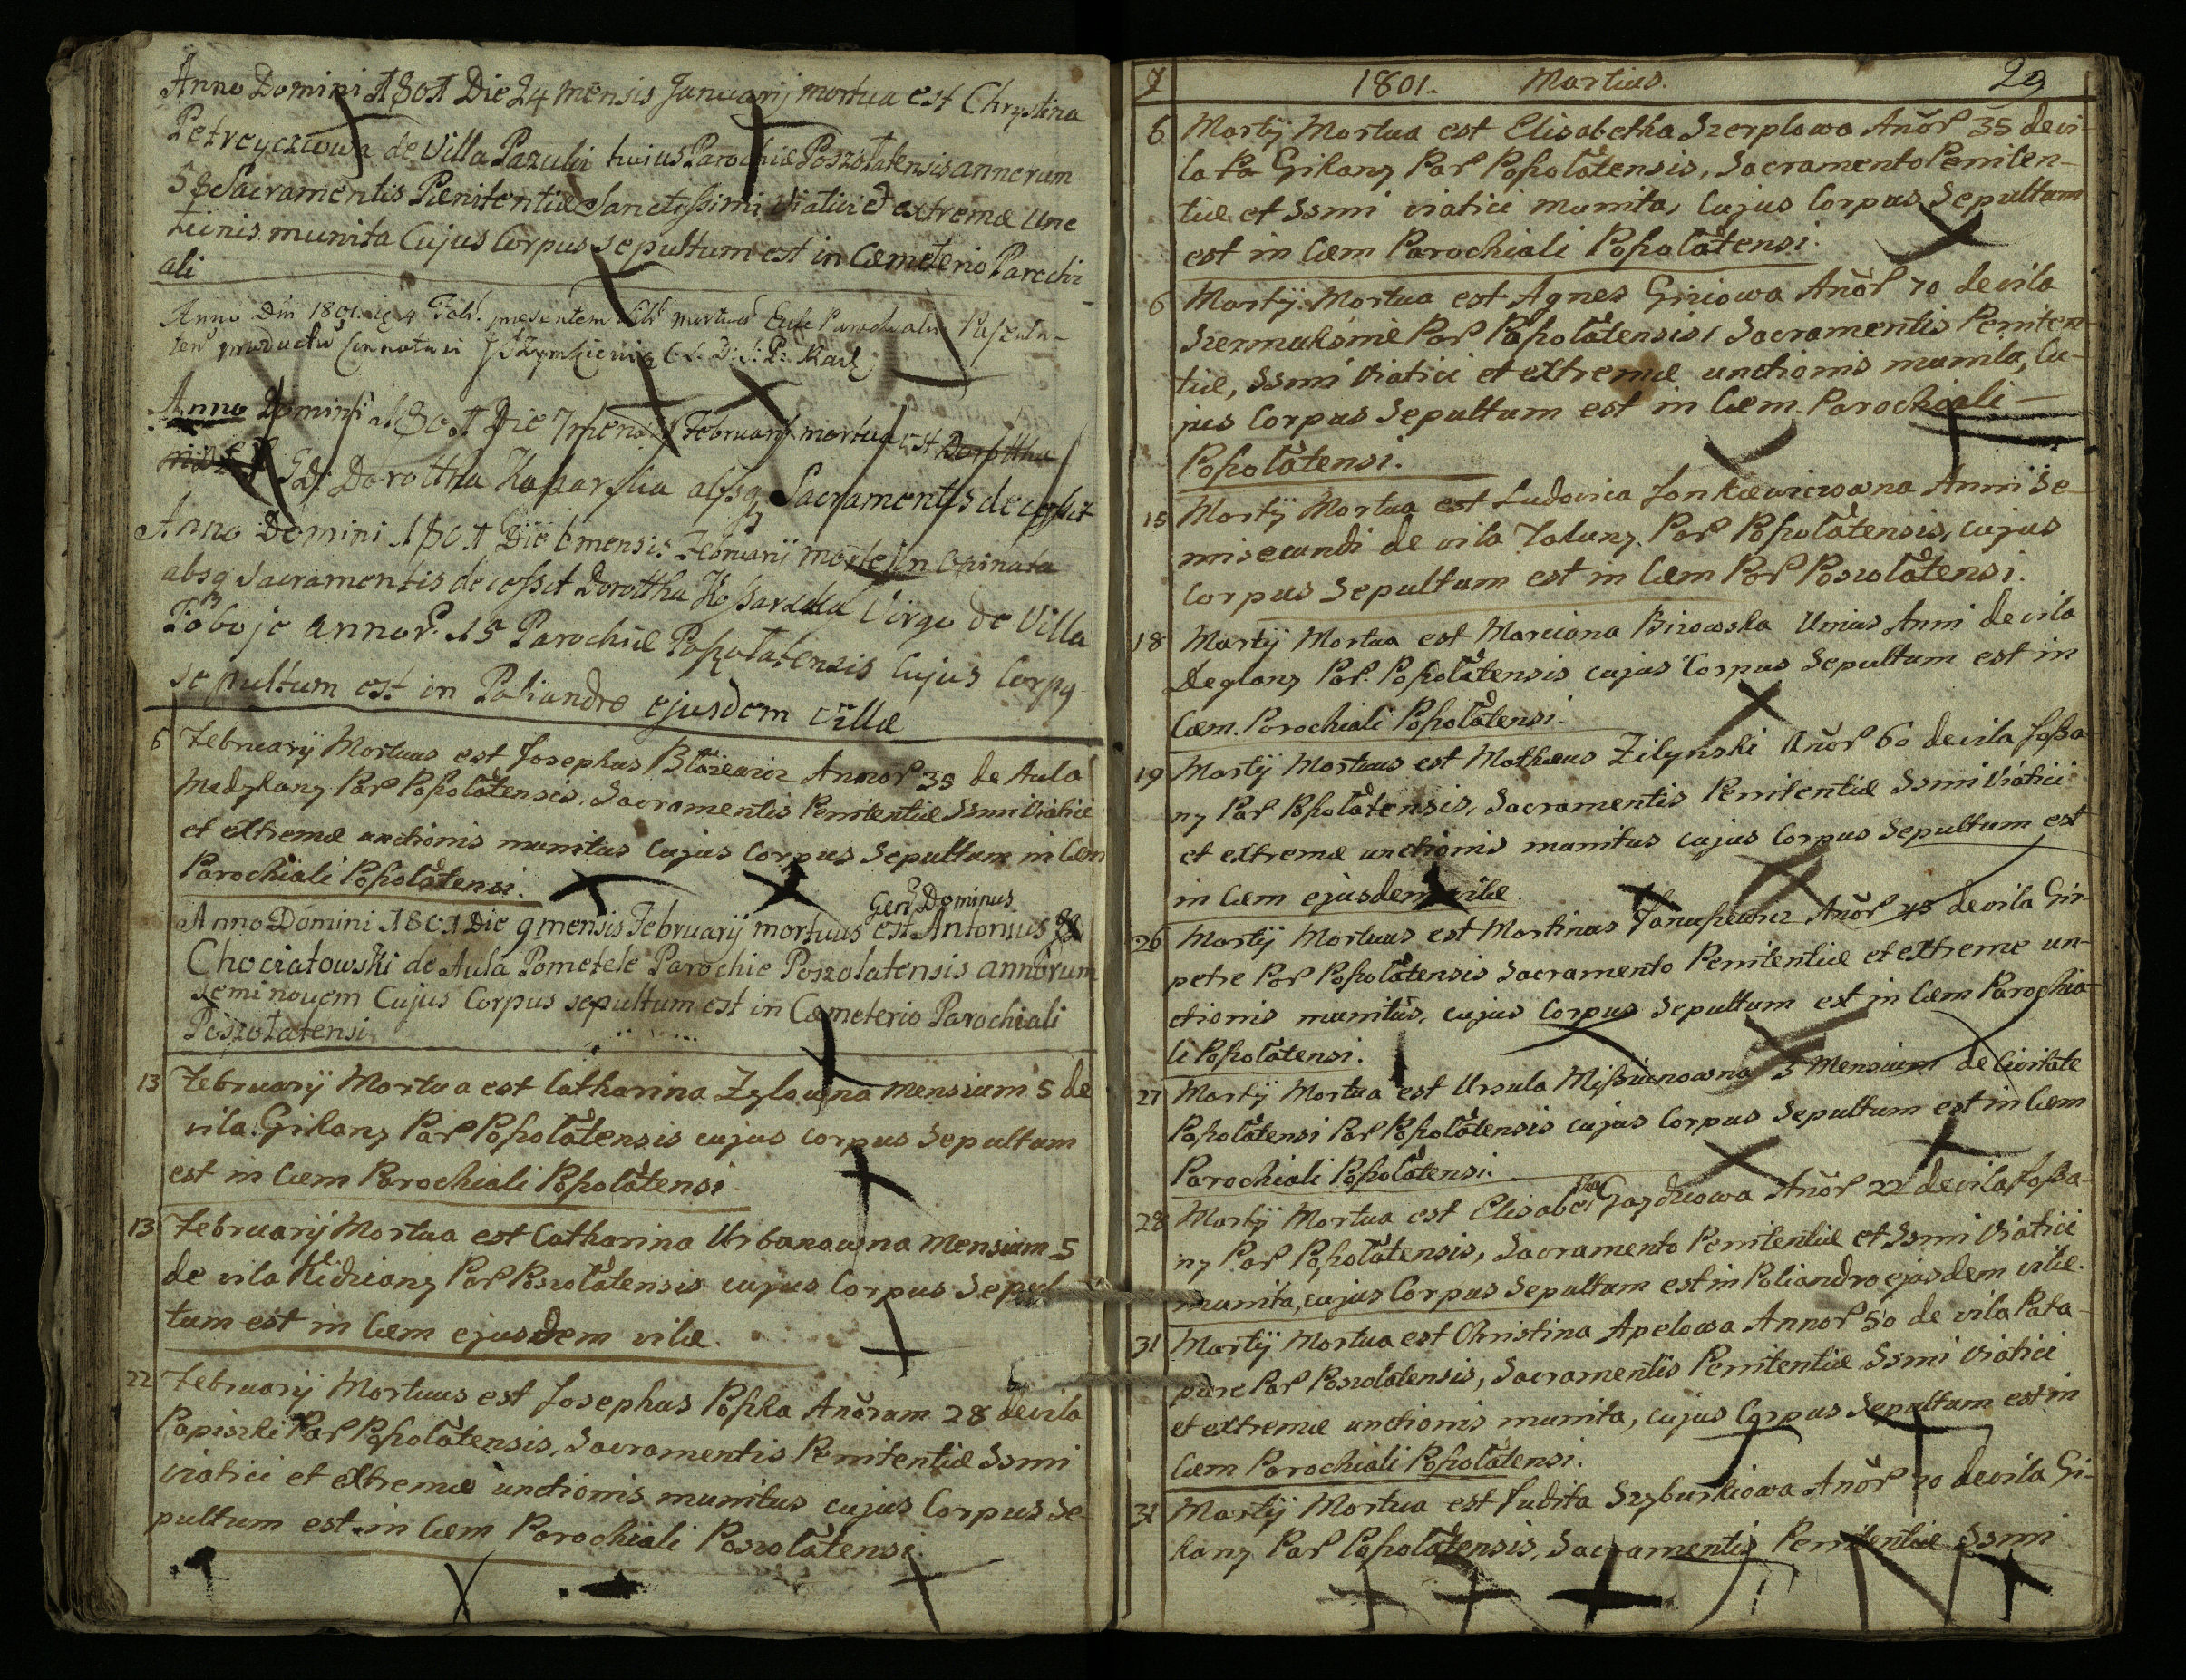 Anno Domini 1801 Die 24 mensis Januarij mortua est Chrystina
Petreyczowa de Villa Pazulu huius Parochiæ Poszołatensis annorum
58 Sacramentis Pænitentiæ Sanctissimi Viatici et extremæ unc
tionis munita Cujus Corpus sepultum est in Cæmeterio Parochi
ali
Anno Dni 1801 4 presentem mortuor
productu connotavi
Anno Domini 1801 Die 7 mensis Februarij mortua est Dorottha
Dorottha absq Sacramentis decessit
Anno Domini 1801 Die 6 mensis Februarij morte in opinata
absq Sacramentis decessit Dorottha Virgo de Villa
Toboje annor 15 Parochiæ Poszołatensis Cujus Corpq
sepultum est in Poliandro ejusdem villæ
6 Februarij Mortuus est Josephus Błażewicz Annor 35 de Aula
Madykany Par Poszołatensis, Sacramentis Penitentiæ Ssmi Viatici
et extremæ unctionis munitus Cujus Corpus Sepultum in Cæm
Parochiali Poszołatensi.
Gen Dominus
Anno Domini 1801 Die 9 mensis Februarij mortuus est Antonius
Chociatowski de Aula Pometele Parochie Poszolatensis annorum
seminovem Cujus Corpus sepultum est in Cæmeterio Parochiali
Poszołatensi
13 Februarij Mortua est Catharina Zylowna mensium 5 de
vila Gikany Par Poszołatensis cujus corpus Sepultum
est in Cæm Parochiali Poszołatensi
13 Februarij Mortua est Catharina Urbanowna Mensium 5
de vila Kidziany Par Poszołatensis cujus Corpus Sepul
tum est in Cæm ejusdem vilæ.
22 Februarij Mortuus est Josephus Poszka Anõrum 28 de vila
Papiszki Par Poszołatensis, Sacramentis Penitentiæ Ssmi
viatici et extremæ unctionis munitus cujus Corpus Se-
pultum est in Cæm Parochiali Poszołatensi.
1801. Martius. 29
6 Martij Mortua est Elisabetha Szerplowa Añor 35 de vi-
la Pa Gikany Par Poszołatensis, Sacramento Peniten-
tiæ et Ssmi viatici munita, Cujus Corpus Sepultum
est in Cæm Parochiali Poszołatensi.
6 Martij Mortua est Agnes Giriowa Añor 70 de vila
Szermuksme Par Poszołatensis, Sacramentis Peniten-
tiæ, Ssmi Viatici et extremæ unctionis munita, Cu-
jus Corpus Sepultum est in Cæm. Parochiali
Poszołatensi.
15 Martij Mortua est Ludovica Jonkiewiczowna Anni Se-
misecundi de vila Taluny Par Poszołatensis, cujus
Corpus Sepultum est in Cæm Par Poszołatensi.
18 Martij Mortua est Marciana Birowska Unius Anni de vila
Deglany Par. Poszołatensis cujus Corpus Sepultum est in
Cæm. Parochiali Poszołatensi.
19 Martij Mortuus est Mathæus Zilynski Añor 60 de vila Jossa
ny Par Poszołatensis, Sacramentis Penitentiæ Ssmi Viatici
et extremæ unctionis munitus cujus Corpus Sepultum est
in Cæm ejusdem vilæ.
26 Martij Mortuus est Martinus Januszewicz Añor 45 de vila Gir-
petre Par Poszołatensis Sacramento Penitentiæ et extreme un-
ctionis munitus, cujus Corpus Sepultum est in Cæm Parochia-
li Poszołatensi.
27 Martij Mortua est Ursula Missiunowna 3 Mensium de Civitate
Poszołatensi Par Poszołatensis cujus Corpus Sepultum est in Cæm
Parochiali Poszołatensi.
28 Martij Mortua est Elisabetha Gayduowa Añor 22 de vila Jossa-
ny Par Poszołatensis, Sacramento Penitentiæ et Ssmi Viatici
munita, cujus Corpus Sepultum est in Poliandro ejusdem vilæ.
31 Martij Mortua est Christina Apelowa Annor 50 de vila Pata-
pure Par Poszołatensis, Sacramentis Penitentiæ Ssmi Viatici
et extremæ unctionis munita, cujus Corpus Sepultum est in
Cæm Parochiali Poszołatensi.
31 Martij Mortua est Judita Szyburkiowa Añor 70 de vila Gi-
kany Par Poszołatensis, Sacramentis Penitentiæ Ssmi